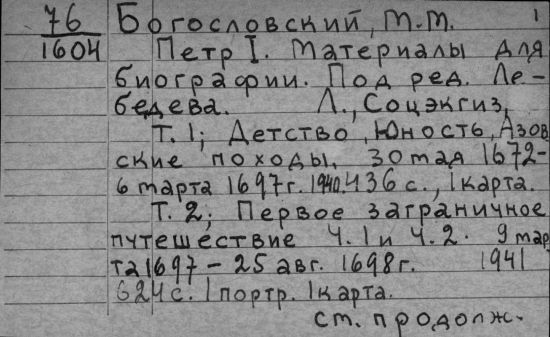 76 Богословский, М.М. 1
1604 Петр I. Материалы для
биографии. Под ред. Ле-
бедева. Л., Соцэкгиз,
Т. 1; Детство, Юность, Азов
ские походы. 30 мая 1672-
6 марта 1697 г. 1940. 436 с., 1 карта.
Т. 2; Первое заграничное
путешествие Ч. 1 и Ч. 2. 9 мар
та 1697 - 25 авг. 1698 г. 1941
624 с. 1 портр. 1 карта.
см. продолж.